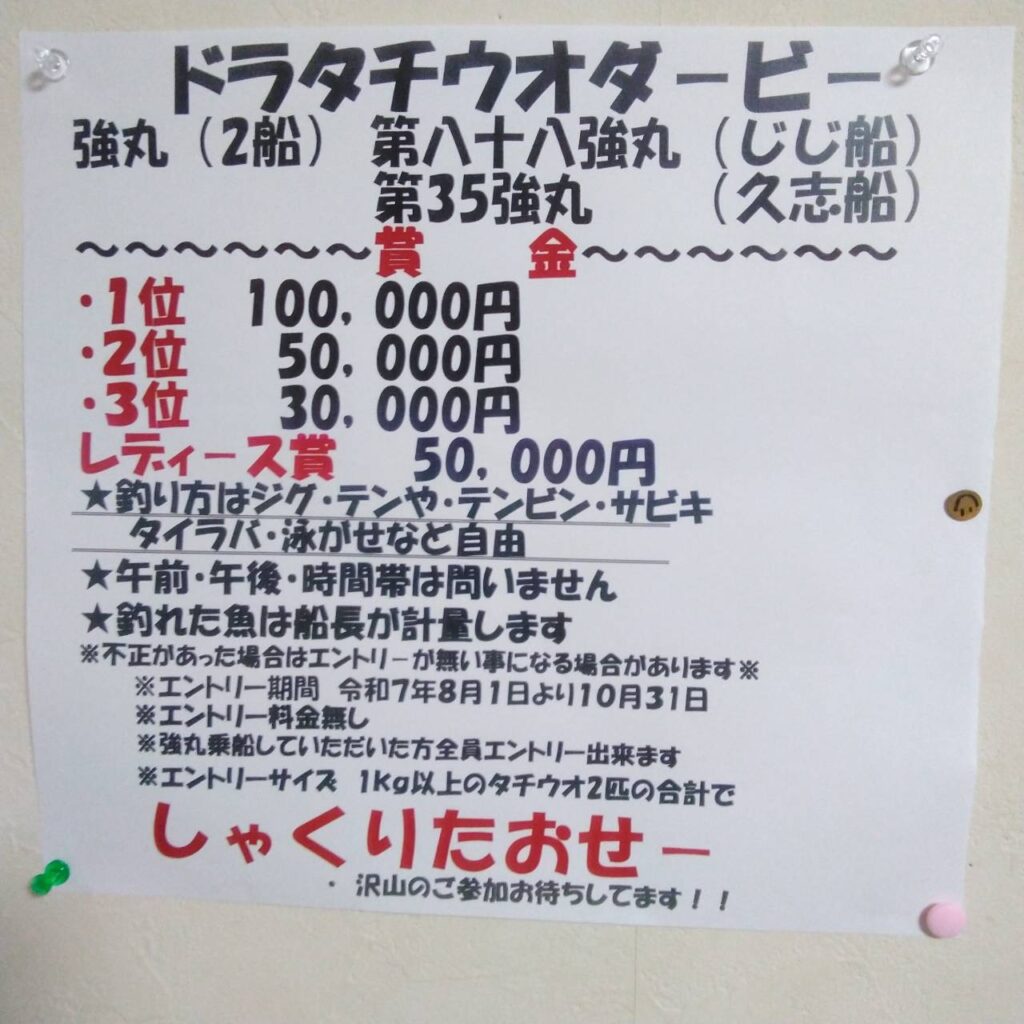 ドラタチウオダービー
強丸（2船） 第八十八強丸（じじ船）
第35強丸 （久志船）
～～～～～～賞 金～～～～～～
・1位 100，000円
・2位 50，000円
・3位 30，000円
レディース賞 50，000円
★釣り方はジグ・テンや・テンビン・サビキ
タイラバ・泳がせなど自由
★午前・午後・時間帯は問いません
★釣れた魚は船長が計量します
※不正があった場合はエントリーが無い事になる場合があります※
※エントリー期間 令和7年8月1日より10月31日
※エントリー料金無し
※強丸乗船していただいた方全員エントリー出来ます
※エントリーサイズ 1kg以上のタチウオ2匹の合計で
しゃくりたおせー
・ 沢山のご参加お待ちしてます！！